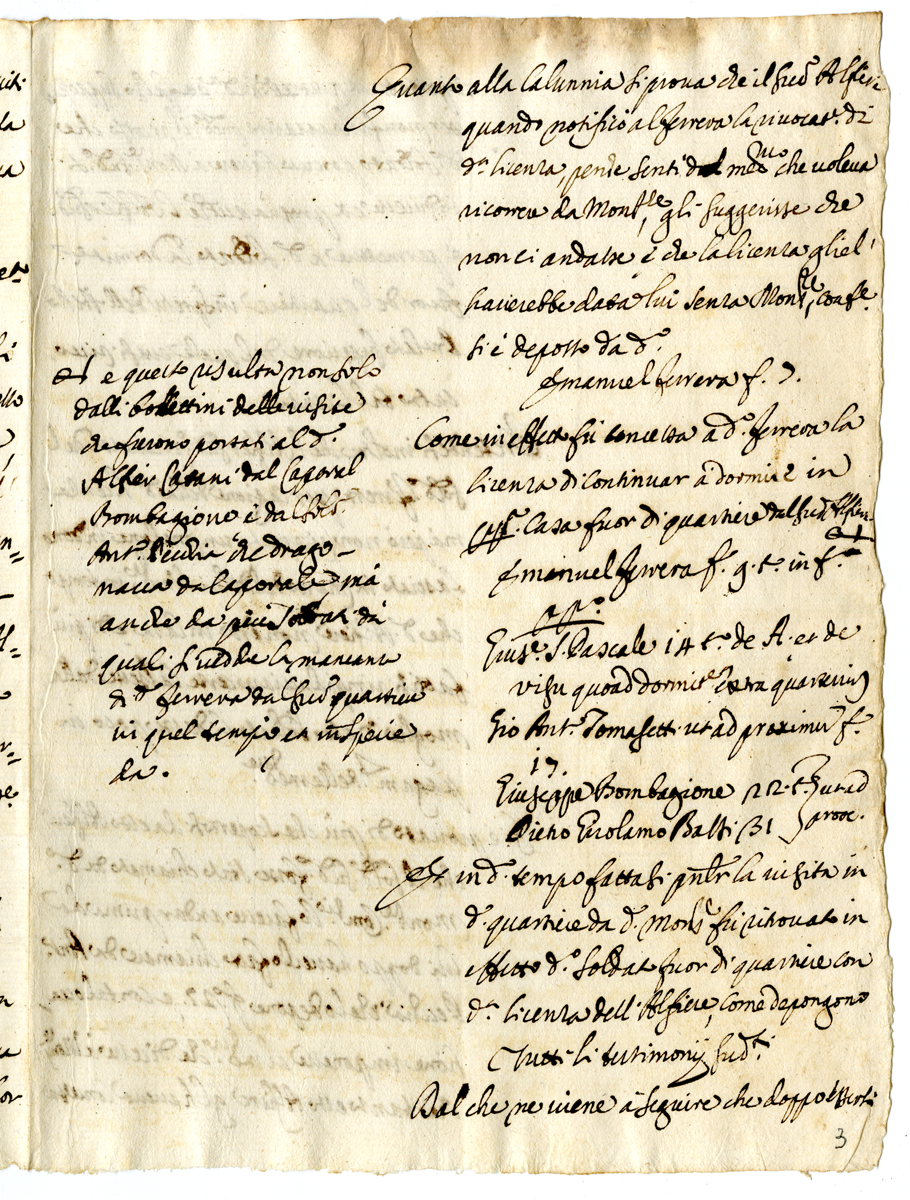 Quanto alla Calunnia si prova che il sud.º Alfier
quando notificò al Ferrera la rivocat.e di
d.ª licenza, perche sentì dal med.mo che voleva
ricorrere da Mons.re, gli suggerisse che
non ci andasse è che la licenza gliel'
haverebbe data lui senza Mons.re,
si è deposto da d.º
Emanuel Ferrera f. 7.
Come in effetto fù concessa a d.º Ferrera la
licenza di continuar à dormire in
Casa fuor di quartiere dal sud.º Alfier
Emanuel Ferrera f. 9. t.º in f.e
Gius.e S. Pascale 14 t.º de A. et de
visu quoad dormit.e extra quarterium
Gio Ant.º Tomasett. ut ad proximum f.º
17.
Giuseppe Bombagione 22. t.º ut ad
Pietro Girolamo Balti 31 prox.
Et in d.º tempo fattasi la visita in
d.º quartiere da d.º Mons.re fù ritrovato in
effetto d.º Soldat.º fuor di quartiere con
d.ª licenza dell'Alfiere, Come depongono
Tutti li testimonij sud.ti
Dal che ne viene à seguire che doppo
3
e questo risulta non solo
dalli bollettini delle visite
che furono portati al d.º
Alfier Casani dal Caporal
Bombagione è dal sold.º
Ant.º che drago-
nava da Caporale, mà
anche da più Soldati da
quali si vedde la mancanza
di d.º Ferrera dal sud.º quartiere
in quel tempo et in specie
da.